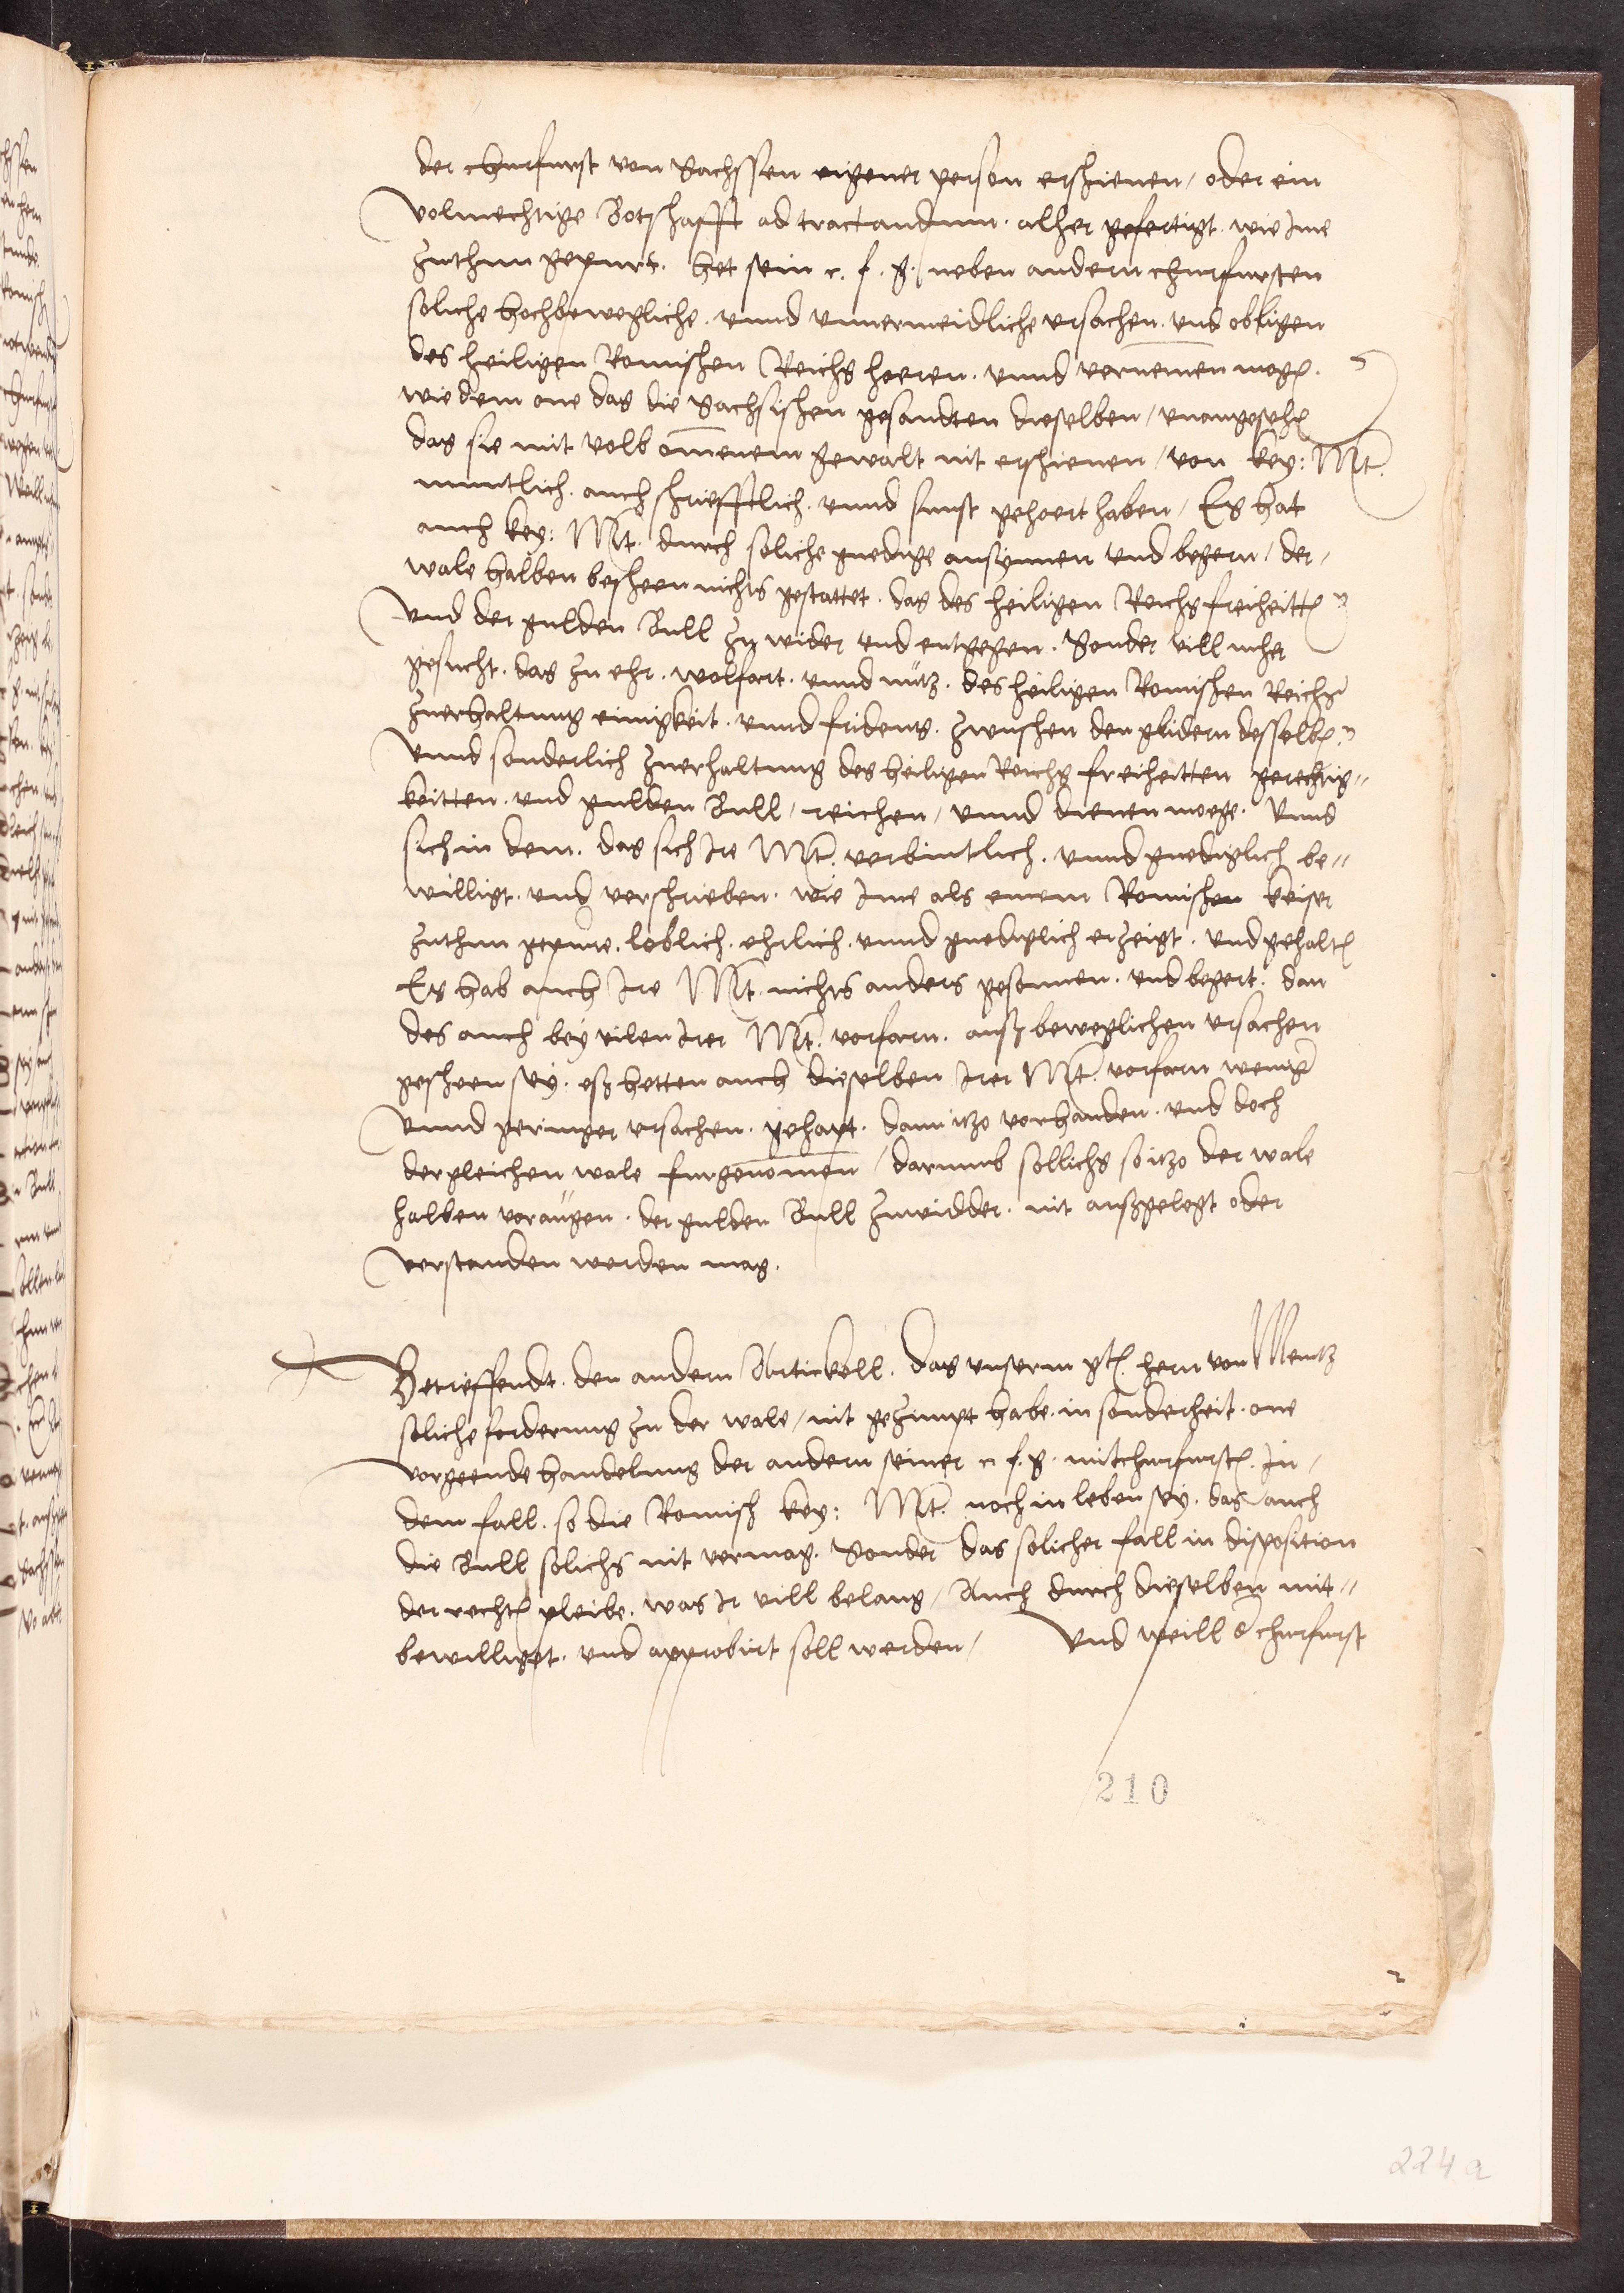 der churfurst von Sachssen eigener person erschienen / oder ein
volmechtige Botschafft ad tractandum . alher gefertigt . wie Ime
zuthun gepurt . het sein c. f. g. neben andern churfursten
soliche hochbewegliche . unnd unvermeidliche ursachen . und obligen
des heiligen Romischen Reichs hoeren . unnd vernemen mogen .
wie dem one das die Sachsischen gesandten dieselben / unangesehen
das sie mit volkomenem gewalt nit erschienen / von key: Mt.
muntlich . auch schriefftlich . unnd sunst gehoert haben / Es hat
auch key: Mt. durch soliche gnedige ansynnen und begern / der /
wale halben bescheen nichts gestattet . das des heiligen Reichs freiheitten
und der gulden Bull zu wider und entgegen . Sonder vill meher
gesucht . das zu ehr . wolfart . unnd nutz . des heiligen Romischen Reichs
zuerhaltung einigkeit . unnd fridens . zwuschen den glidern desselben .
unnd sonderlich zuerhaltung des heiligen Reichs freiheitten gerechtig=
keitten . und gulden Bull / reichen / unnd dienen moege . Unnd
sich in dem . das sich Ire Mt. verbintlich . unnd gnediglich be=
willigt . und verschrieben . wie Ime als einem Romischen keiser
zuthun gepure . loblich . ehrlich . unnd gnediglich erzeigt . und gehalten
Es hab auch Ire Mt. nichts anders gesonnen . und begert . dan
des auch bey vilen Irer Mt. vorfarn . auß beweglichen ursachen
gescheen sey . eß hetten auch dieselben Irer Mt. vorfarn weniger
unnd geringer ursachen . gehapt . dann itzo vorhanden . und doch
dergleichen wale furgenomen / darumb sollichs so itzo der wale
halben vor augen . der gulden Bull zuwidder . nit außgelegt oder
verstanden werden mag .
Betreffendt . den andern Artickell . das unserm gten. hern von Mentz
soliche forderung zu der wale / nit gezimpt habe . in sonderheit . one
vorgeende handelung der andern seiner c. f. g. mitchurfursten . In /
dem fall . so die Romisch key: Mt. noch in leben sey . das auch
die Bull solichs nit vermag . Sonder das solicher fall in disposition
der rechten pleibe . was Ir vill belang / Auch durch dieselben mit=
bewilliget . und approbirt soll werden / Und weill der churfurst
210
224a